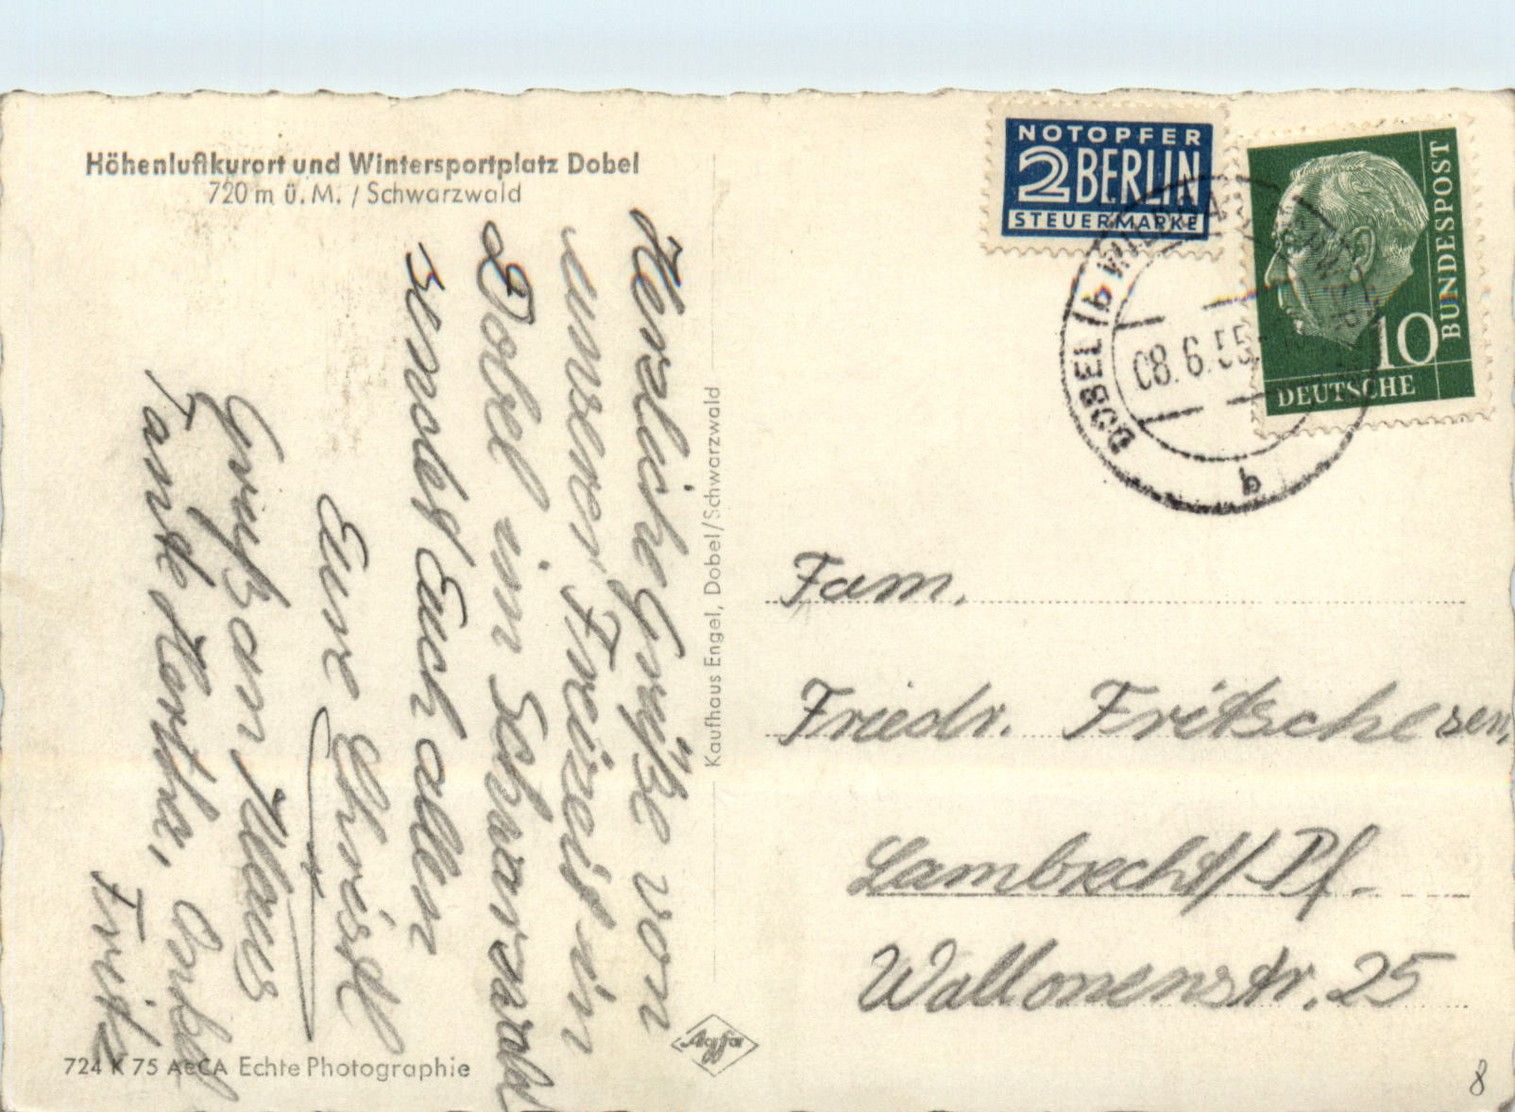 Höhenluftkurort und Wintersportplatz Dobel
720 m ü. M. / Schwarzwald
Herzliche Grüße von
unserer Freizeit in
Dobel im Schwarzwald
sendet Euch allen
Eure Christl
Gruß an Klaus
Tante Hertha, Onkel
Fritz
724 K 75 AeCA Echte Photographie
Kaufhaus Engel, Dobel/Schwarzwald
Agfa
NOTOPFER
2 BERLIN
STEUERMARKE
DEUTSCHE
BUNDESPOST
10
DOBEL
08.6.55
b
Fam.
Friedr. Fritsche sen.
Lambrecht/Pf.
Wallonenstr. 25
8